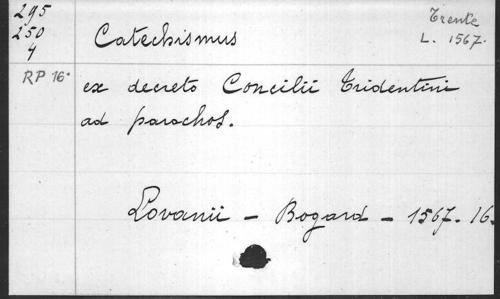 295
250
4
RP 16°
Trente
L. 1567.
Catechismus
ex decreto Concilii Tridentini
ad parochos.
Lovanii - Bogard - 1567. 16.